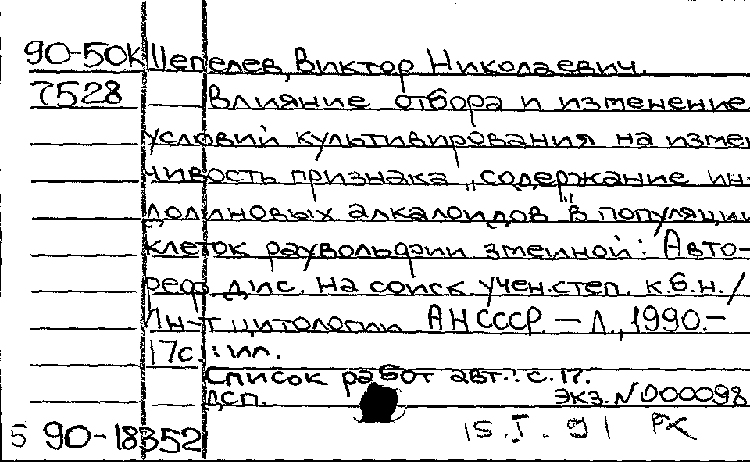 90-50К Шепелев, Виктор Николаевич.
7528 Влияние отбора и изменение
условий культивирования на измен
чивость признака „содержание ин-
долиновых алкалоидов" в популяции
клеток раувольфии змеиной: Авто-
реф. дис. на соиск. учен. степ. к.б.н./
Ин-т цитологии АН СССР. — Л., 1990.-
17с.: ил.
Список работ авт.: с. 17.
ДСП. Экз. N 000098
5 90-18352 15.I.91 РК